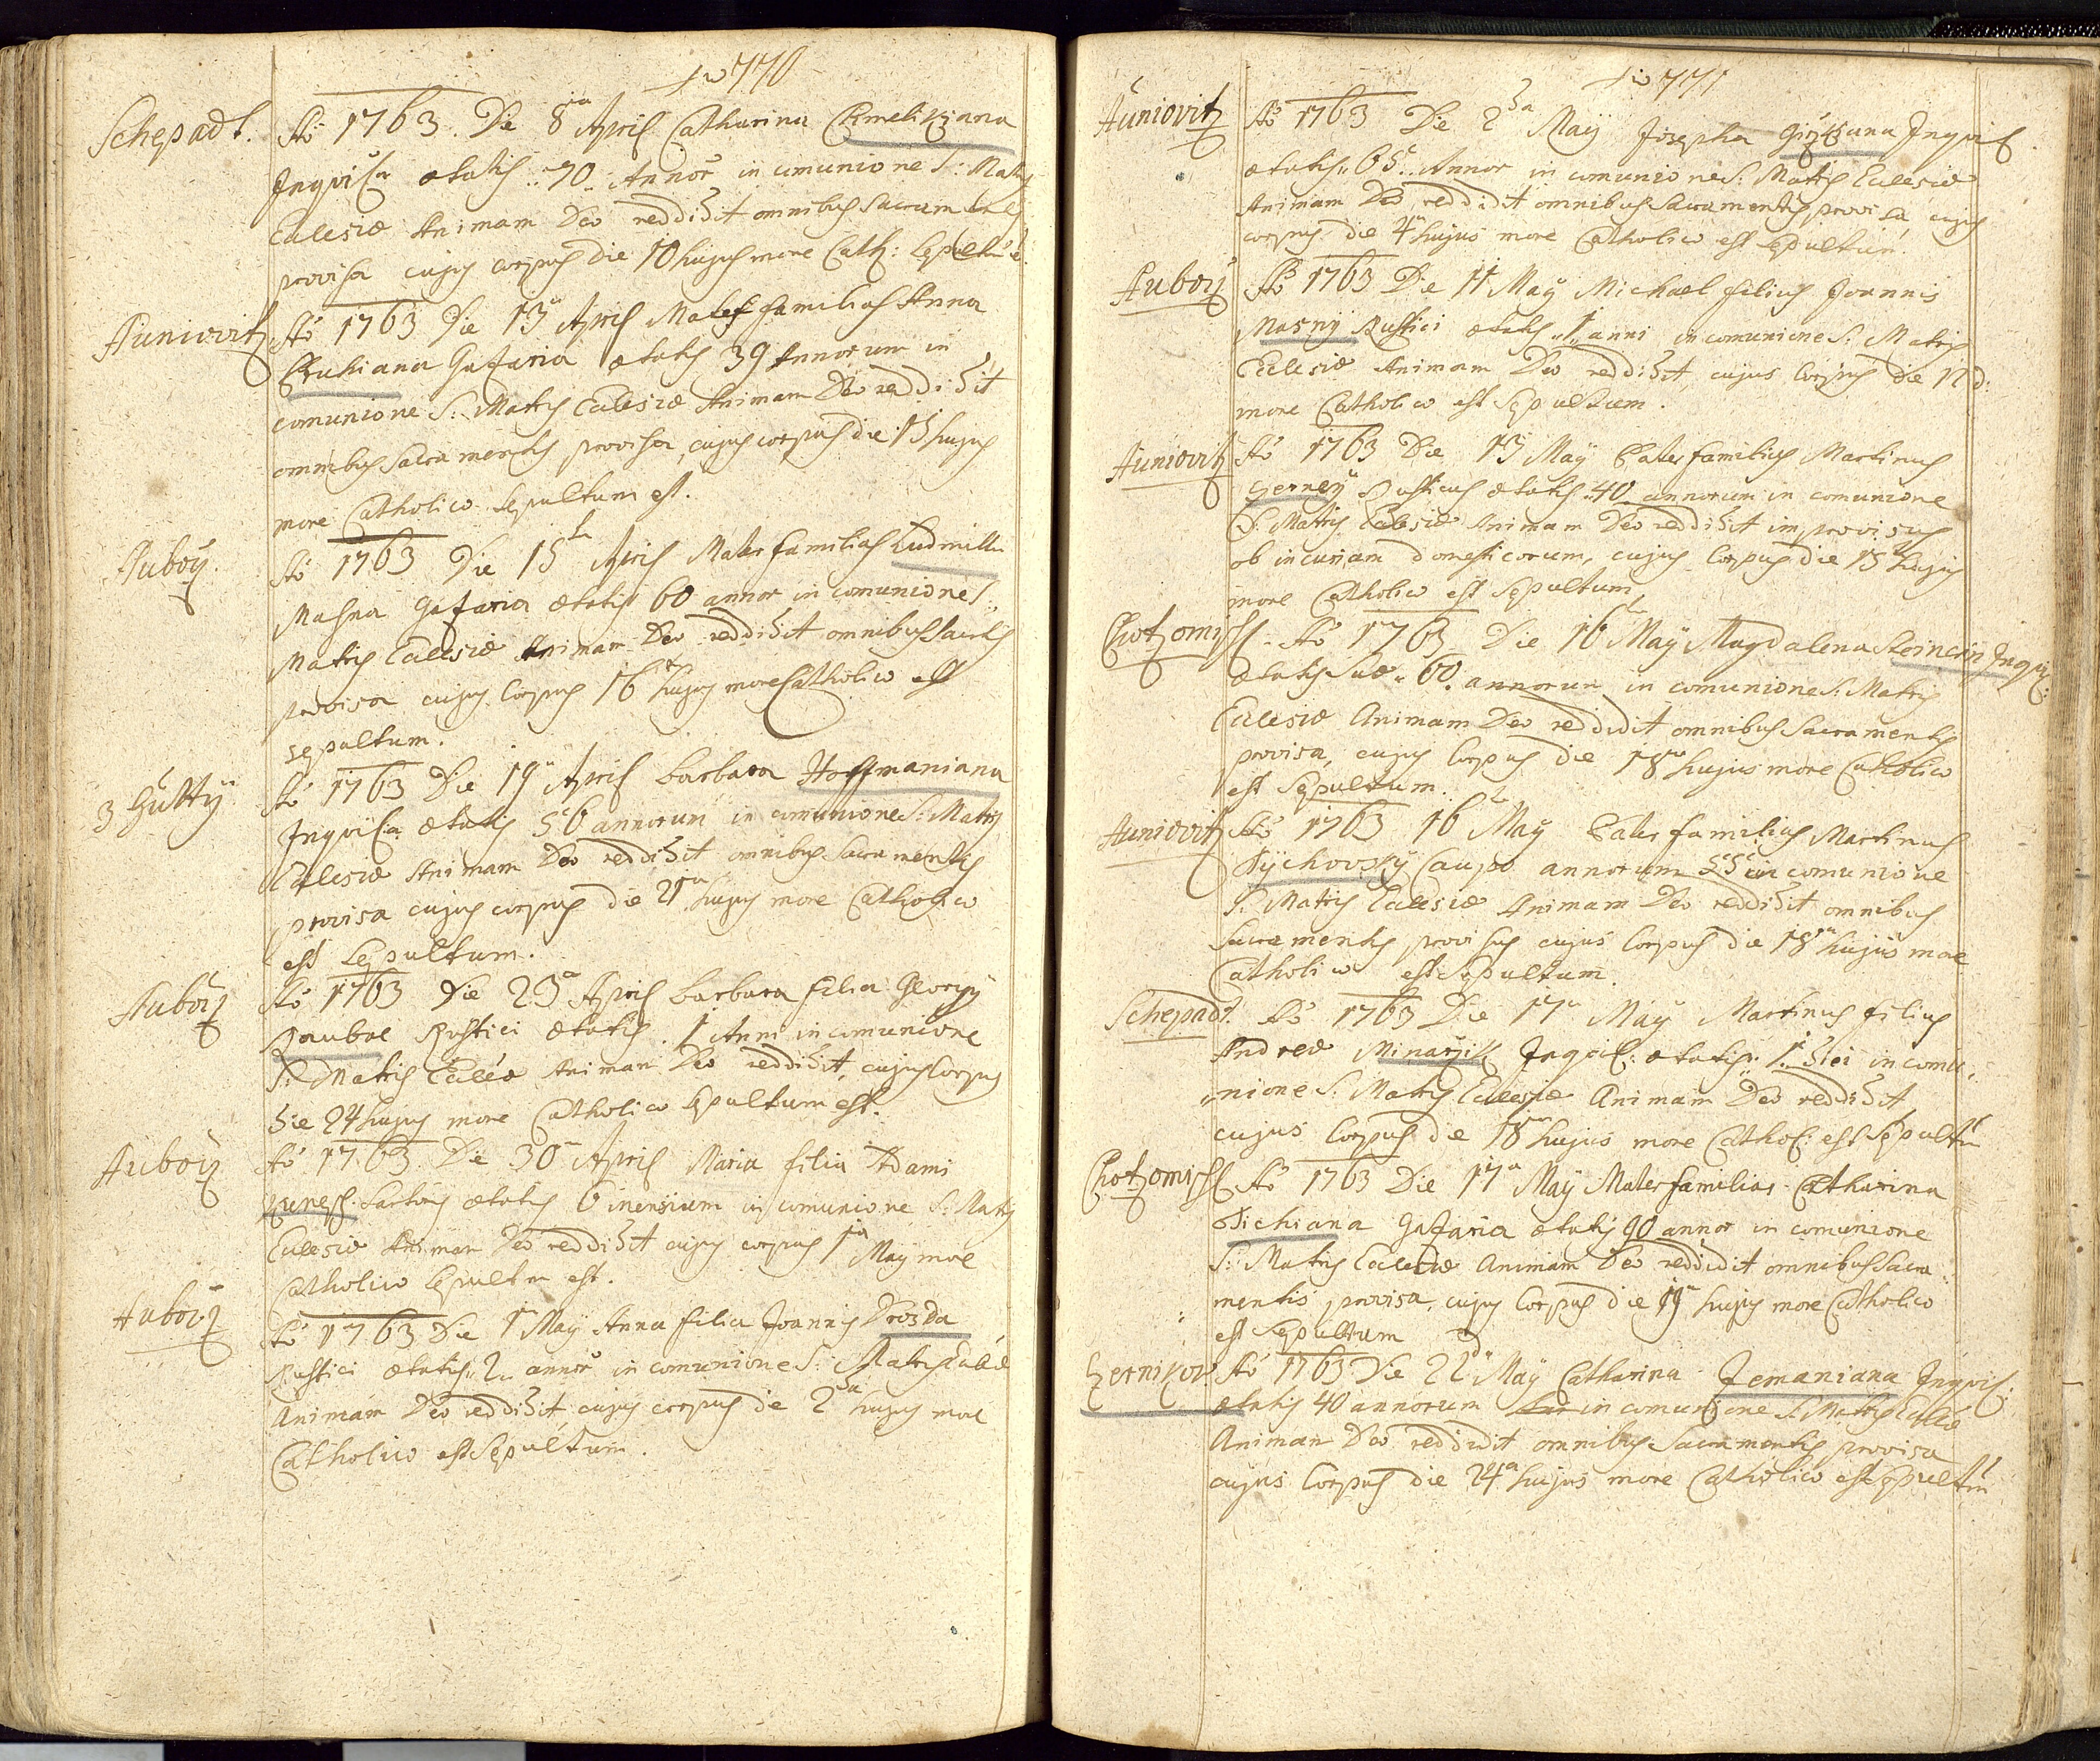 770
Schepadt.
Aõ 1763. Die 8va April Catharina Chmelikiana
Inqvil:a ætatis 70. Annor̃ in comunione S: Matris
Eclesiæ Animam Deo reddidit omnibus Sacramentis
provisa cujus corpus die 10 hujus more Cath: Sepultũ ẽ.
Auniovitz
Aõ 1763 Die 13 April Mater familias Anna
Bruhiana Gazaria ætatis 39 Annorum in
comunione S: Matris Eclesiæ Animam Deo reddidit
omnibus Sacramentis provisa, cujus corpus die 15 hujus
more Catholico Sepultum est.
Auboy.
Aõ 1763 Die 15ta April Mater familias Ludmilla
Masna Gazaria ætatis 60 annor in comunione S:
Matris Eclesiæ Animam Deo reddidit omnibus Sactis
provisa cujus Corpus 16 hujus more Catholico est
sepultum.
3 Hütty
Aõ 1763 Die 19 April barbara Hoffmaniana
Inqvil:a ætatis 56 annorum in comunione S: Matris
Eclesiæ Animam Deo reddidit omnibus Sacramentis
provisa cujus corpus die 21 hujus more Catholico
est Sepultum.
Auboiz
Aõ 1763 Die 23a April barbara filia Georgy
Raubal Rustici ætatis 1 Anni in comunione
S: Matris Ecleæ Animam Deo reddidit, cujus Corpus
die 24 hujus more Catholico sepultum est.
Auboiz
Aõ 1763 Die 30 April Maria filia Adami
Kunesh Sartoris ætatis 6 mensium in comunione S: Matris
Eclesiæ Animam Deo reddidit cujus corpus 1ma Maÿ more
Catholico sepultm est.
Auboiz
Aõ 1763 Die 1 Maÿ Anna filia Joannis Drozda
Rustici ætatis 2 annor̃ in comunione S: Matris Ecleæ
Animam Deo reddidit, cujus corpus de 2da hujus more
Catholico est Sepultum.
771
Auniovitz
Aõ 1763 Die 2da Maÿ Josepha Inqvil
ætatis 65. Annor in comunione S: Matris Eclesiæ
Animam Deo reddidit omnibus Sacramentis provisa, cujus
corpus die 4 hujus more Catholico est Sepultum.
Auboiz
Aõ 1763 Die 11 Maÿ Michael filius Joannis
Masnÿ Rustici ætatis 1 anni in comunione S: Matris
Eclesiæ Animam Deo reddidit cujus Corpus die 12 d:
more Catholico est Sepultum.
Auniovitz
Aõ 1763 Die 13 Maÿ Pater familias Martinus
Gernej Rusticus ætatis 40 annorum in comunione
S: Matris Eclesiæ Animam Deo reddidit improvisus
ob incuriam domesticorum, cujus Corpus die 15 hujus
more Catholico est Sepultum.
Chotzomischl
Aõ 1763 Die 16 Maÿ Magdalena Steinerin Inqvil:
ætatis Suæ 60. annorum in comunione S: Matris
Eclesiæ Animam Deo reddidit omnibus Sacramentis
provisa, cujus Corpus die 18 hujus more Catholico
est Sepultum.
Auniovitz
Aõ 1763 16 Maÿ Pater familias Martinus
Tÿchovskÿ Caupo annorum 55 in comunione
S: Matris Eclesiæ Animam Deo reddidit omnibus
Sacramentis provisus cujus Corpus die 18 hujus more
Catholico est Sepultum.
Schepadt.
Aõ 1763 Die 17 Maÿ Martinus filius
Andreæ Minarzik Inqvil: ætatis 1 diei in comu
nione S: Matris Eclesiæ Animam Deo reddidit
cujus Corpus die 18 hujus more Cathol: est Sepultm
Chotzomischl
Aõ 1763 Die 17a Maÿ Mater familias Catharina
Tichiana Gazaria ætatis 90 annor in comunione
S: Matris Eclesiæ Animam Deo reddidit omnibus Sacra
mentis provisa, cujus Corpus die 19 hujus more Catholico
est Sepultum
Czernikov
Aõ 1763 Die 22 Maÿ Catharina Zemaniana Inqvil:
ætatis 40 annorum in comunione S: Matris Ecleæ
Animam Deo reddidit omnibus Sacramentis provisa
cujus Corpus die 24a hujus more Catholico est Sepultm